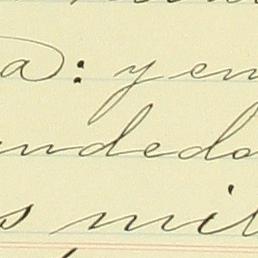 a: y en
ndeda
s mil